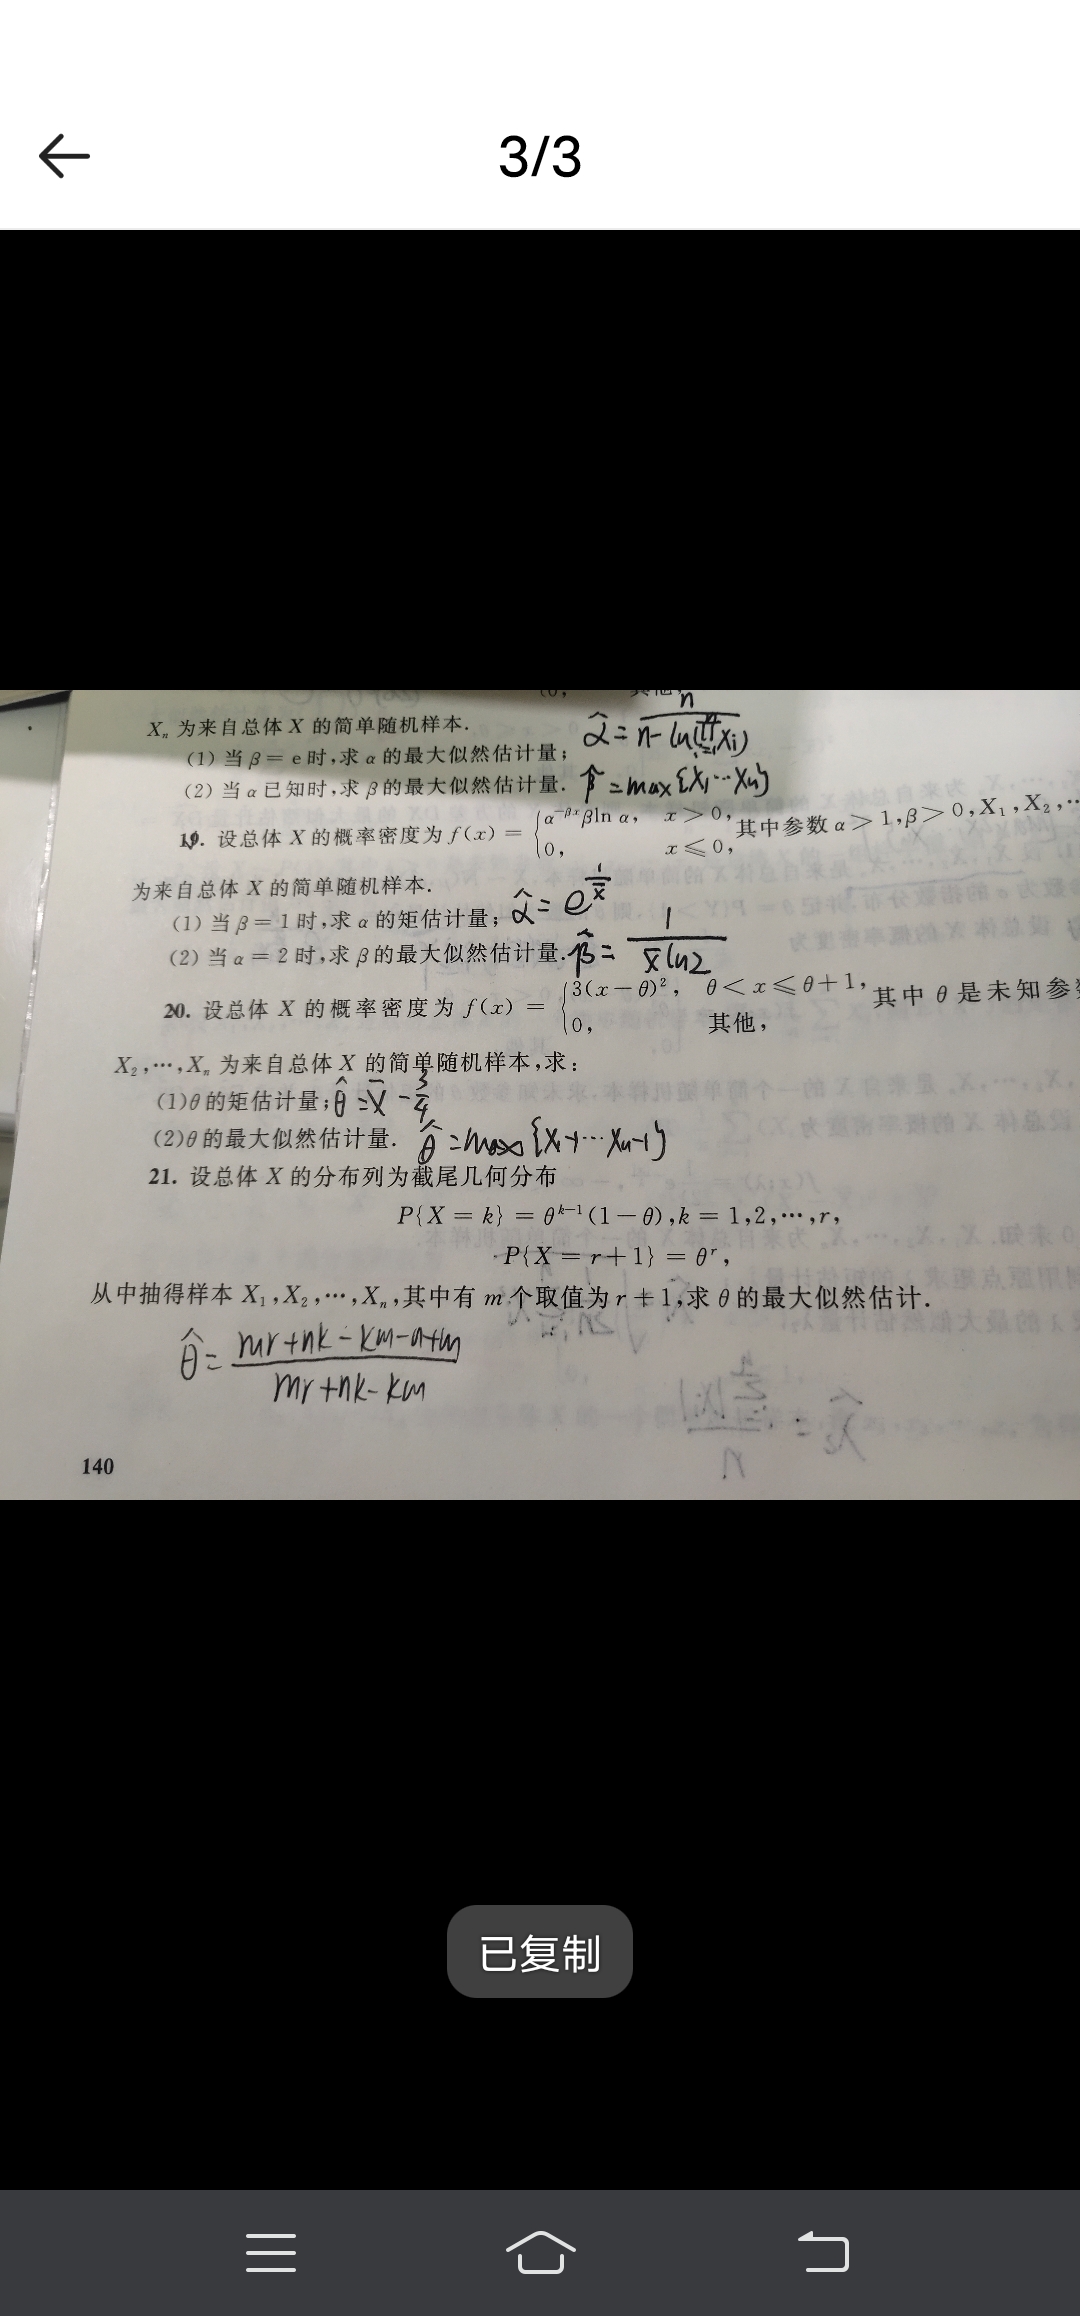 3/3
X_n 为来自总体 X 的简单随机样本.
(1) 当 β = e 时,求 α 的最大似然估计量; α̂ = n / (n - ln(∏_{i=1}^{n} X_i))
(2) 当 α 已知时,求 β 的最大似然估计量. β̂ = max{X_1 … X_n}
19. 设总体 X 的概率密度为 f(x) = { α^{-βx} β ln α, x > 0, 0, x ≤ 0, 其中参数 α > 1, β > 0, X_1, X_2, ⋯
为来自总体 X 的简单随机样本.
(1) 当 β = 1 时,求 α 的矩估计量; α̂ = e^{1/x̄}
(2) 当 α = 2 时,求 β 的最大似然估计量. β̂ = 1 / (x̄ ln2)
20. 设总体 X 的概率密度为 f(x) = { 3(x - θ)², θ < x ≤ θ + 1, 0, 其他, 其中 θ 是未知参
X_2, ⋯, X_n 为来自总体 X 的简单随机样本,求:
(1) θ 的矩估计量; θ̂ = x̄ - 3/4
(2) θ 的最大似然估计量. θ̂ = max{X_1-1 … X_n-1}
21. 设总体 X 的分布列为截尾几何分布
P{X = k} = θ^{k-1}(1 - θ), k = 1,2,⋯,r,
P{X = r + 1} = θ^r,
从中抽得样本 X_1, X_2, ⋯, X_n,其中有 m 个取值为 r + 1,求 θ 的最大似然估计.
θ̂ = (mr + nk - km - n + m) / (mr + nk - km)
140
已复制